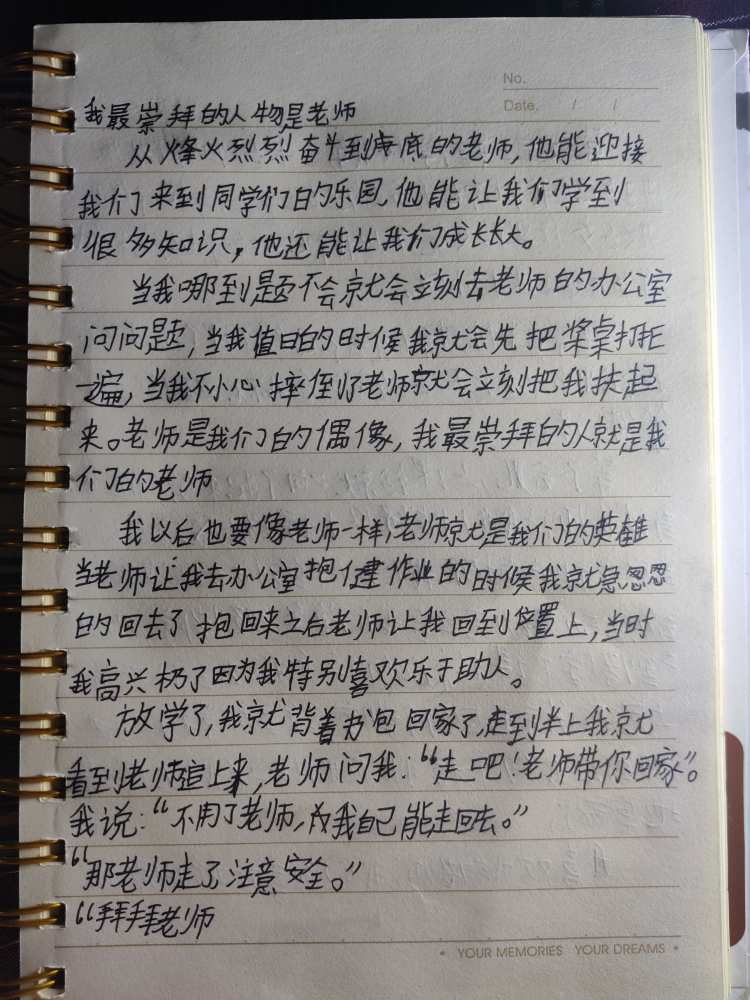 No.
Date. / /
我最崇拜的人物是老师
从烽火烈烈奋斗到底的老师,他能迎接
我们来到同学们的乐园,他能让我们学到
很多知识,他还能让我们成长长大。
当我哪到题不会就会立刻去老师的办公室
问问题,当我值日的时候我就会先把桌打托
一遍,当我不小心摔倒了老师就会立刻把我扶起
来。老师是我们的偶像,我最崇拜的人就是我
们的老师
我以后也要像老师一样,老师就是我们的英雄
当老师让我去办公室抱作业的时候我就急忽忽
的回去了抱回来之后老师让我回到位置上,当时
我高兴极了因为我特别喜欢乐于助人。
放学了,我就背着书包回家了,走到半上我就
看到老师追上来,老师问我:“走吧!老师带你回家”。
我说:“不用了老师,我自己能走回去。”
“那老师走了注意安全。”
“拜拜老师
YOUR MEMORIES YOUR DREAMS